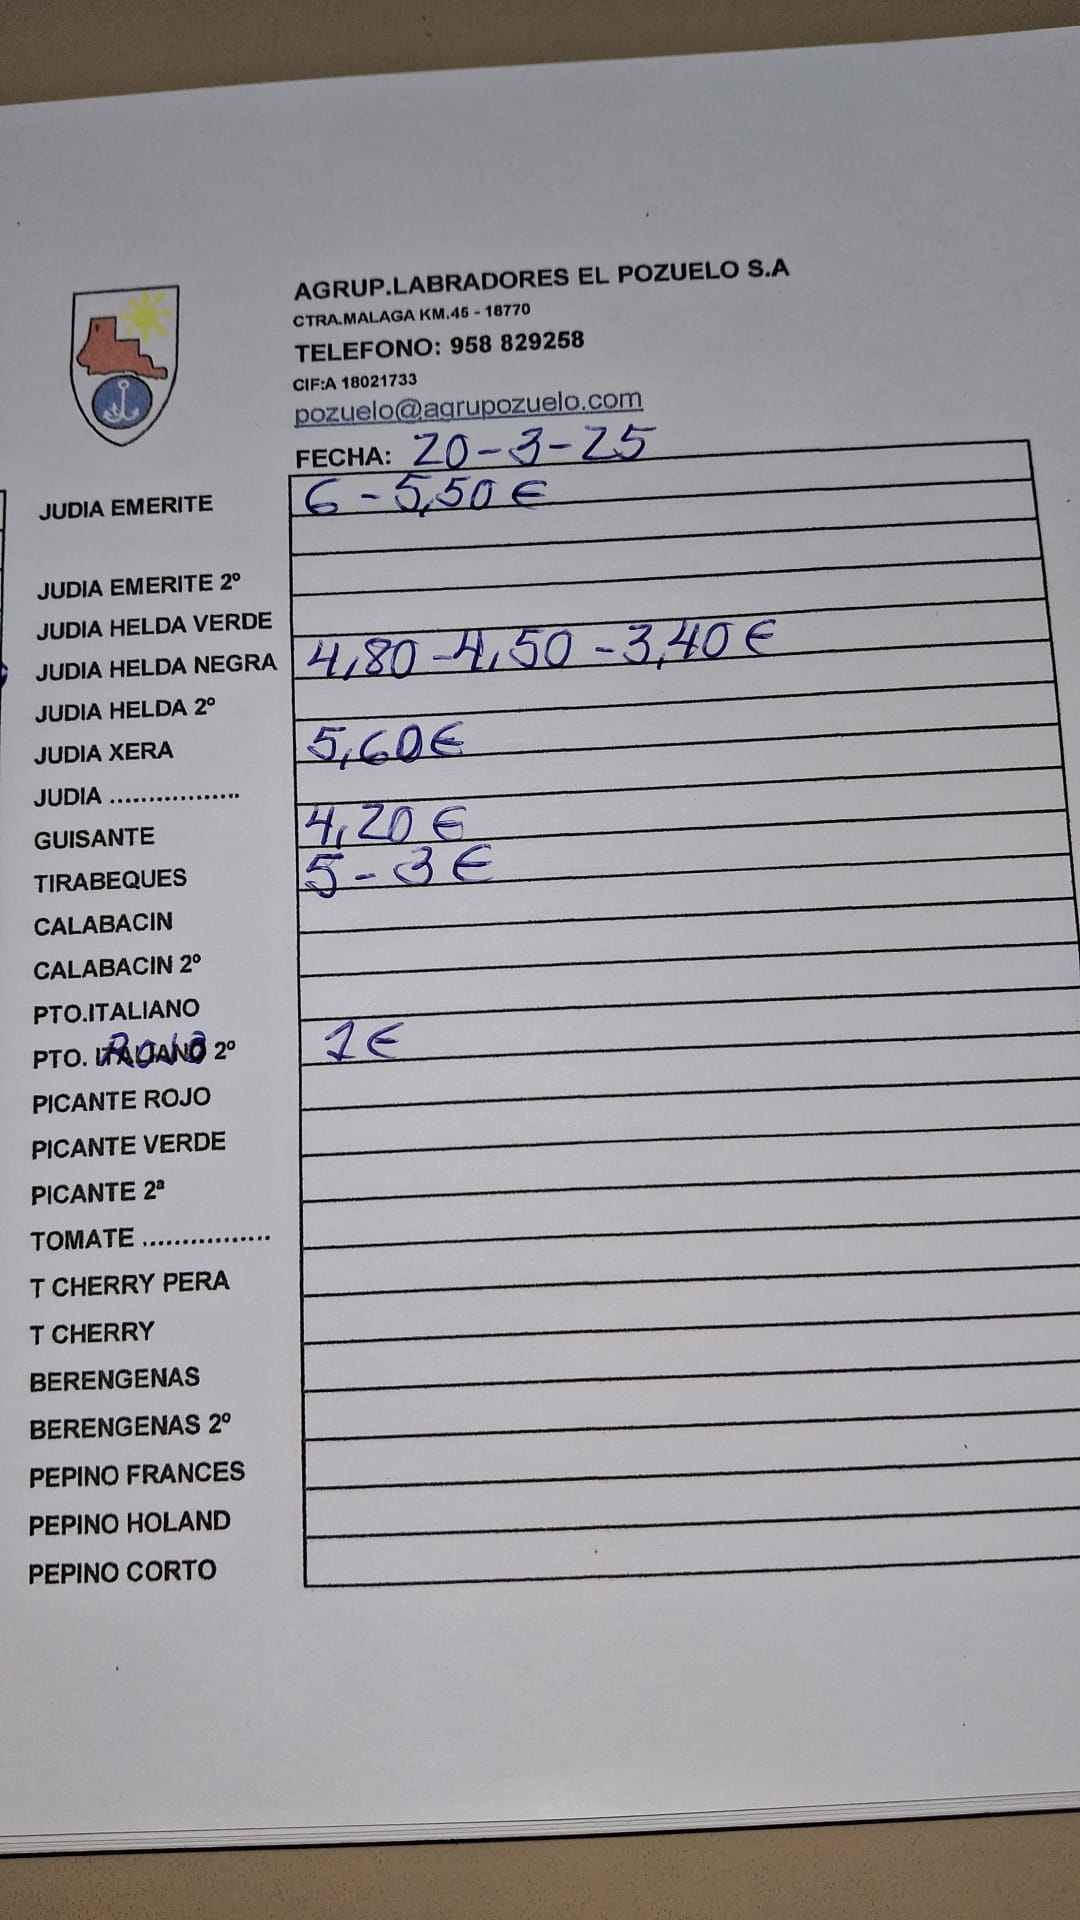 AGRUP.LABRADORES EL POZUELO S.A
CTRA.MALAGA KM.45 - 18770
TELEFONO: 958 829258
CIF:A 18021733
pozuelo@agrupozuelo.com
FECHA: 20-3-25
JUDIA EMERITE 6 - 5,50 €
JUDIA EMERITE 2º
JUDIA HELDA VERDE
JUDIA HELDA NEGRA 4,80 - 4,50 - 3,40 €
JUDIA HELDA 2º
JUDIA XERA 5,60 €
JUDIA .................
GUISANTE 4,20 €
TIRABEQUES 5 - 3 €
CALABACIN
CALABACIN 2º
PTO.ITALIANO
PTO. ITALIANO Rojo 2º 1 €
PICANTE ROJO
PICANTE VERDE
PICANTE 2ª
TOMATE ................
T CHERRY PERA
T CHERRY
BERENGENAS
BERENGENAS 2º
PEPINO FRANCES
PEPINO HOLAND
PEPINO CORTO